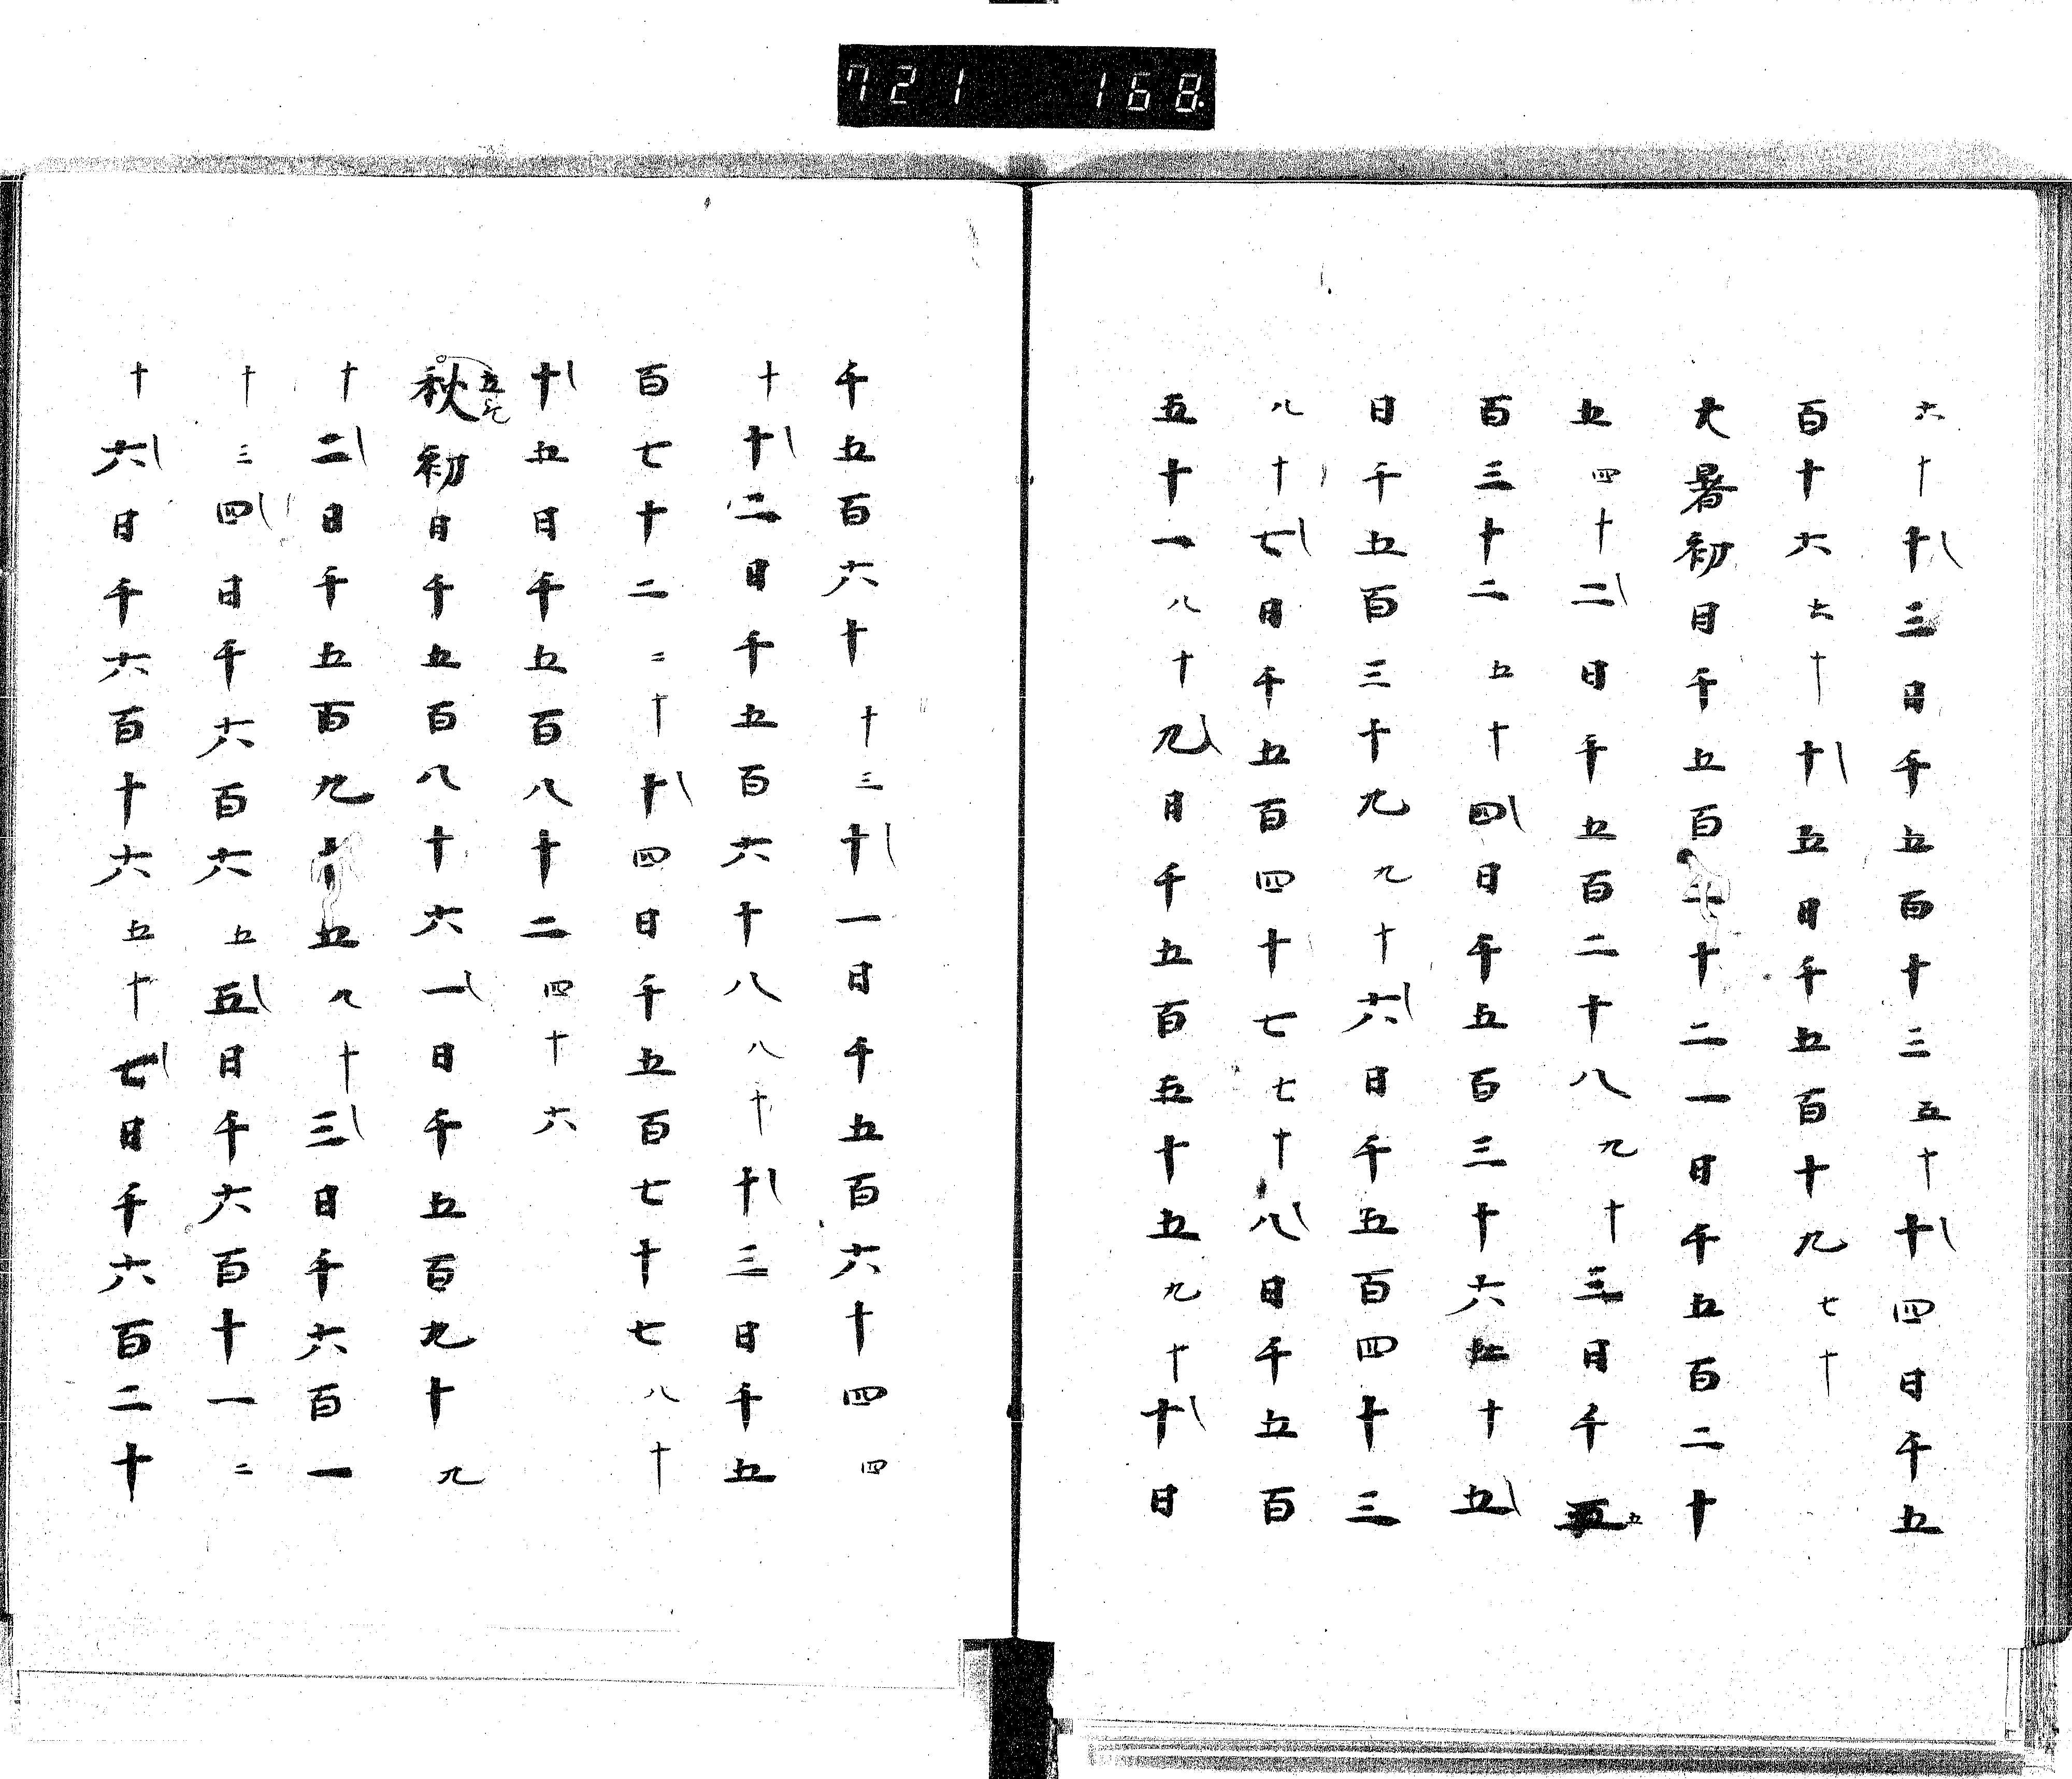 721 168
六十十三日千五百十三五十十四日千五
百十六六十十五日千五百十九七十
大暑初日千五百十二一日千五百二十
五四十二日千五百二十八九十三日千五五
百三十二五十四日千五百三十六十五
日千五百三十九九十六日千五百四十三
八十七日千五百四十七七十八日千五百
五十一八十九日千五百五十五九十十日
千五百六十十三十一日千五百六十四四
十十二日千五百六十八八十十三日千五
百七十二二十十四日千五百七十七八十
十五日千五百八十二四十六
秋立初日千五百八十六一日千五百九十九
十二日千五百九十五八十三日千六百一
十三四日千六百六五五日千六百十一二
十六日千六百十六五十七日千六百二十